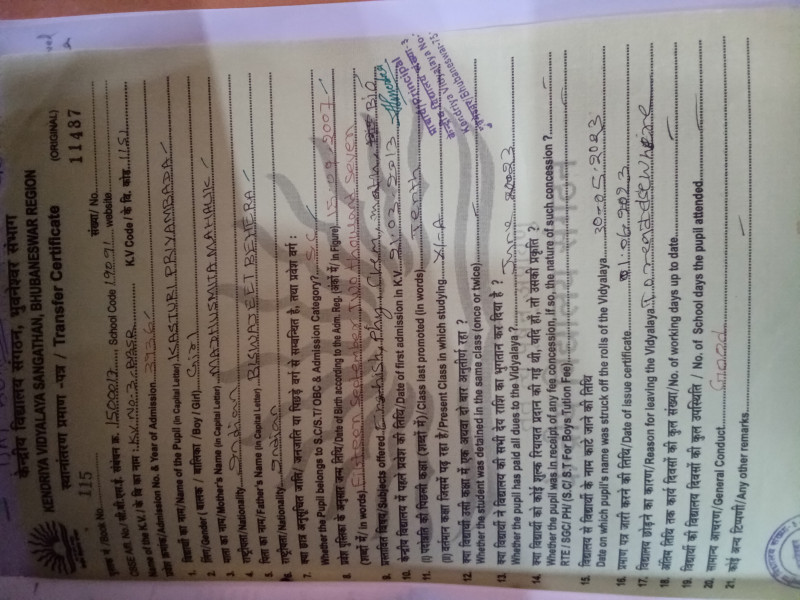 केन्द्रीय विद्यालय संगठन, भुवनेश्वर संभाग
KENDRIYA VIDYALAYA SANGATHAN, BHUBANESWAR REGION
स्थानांतरण प्रमाण -पत्र / Transfer Certificate (ORIGINAL)
पुस्तक नं /Book No. 115 संख्या/ No. 11487
CBSE Aff. No./ सी.बी.एस.ई. संबंधन क्र. 1500017 School Code 19091 website
Name of the K.V./ के वि का नाम : K.V. No. 3, BBSR K.V Code / के वि. कोड 1151
प्रवेश क्रमांक/Admission No. & Year of Admission 3936
1. विद्यार्थी का नाम/Name of the Pupil (in Capital Letter) KASTURI PRIYAMBADA
2. लिंग/Gender ( बालक / बालिका /Boy / Girl) Girl
3. माता का नाम/Mother's Name (in Capital Letter) MADHUSMITA MAHALIK
4. राष्ट्रीयता/Nationality Indian
5. पिता का नाम/Father's Name (in Capital Letter) BISWAJEET BEHERA
6. राष्ट्रीयता/Nationality Indian
7. क्या छात्र अनुसूचित जाति/ जनजाति या पिछड़े वर्ग से सम्बन्धित है, तथा प्रवेश वर्ग :
Whether the Pupil belongs to S.C/S.T/ OBC & Admission Category? S.C
8. प्रवेश पुस्तिका के अनुसार जन्म तिथि/Date of Birth according to the Adm. Reg. (अंकों में/ In Figure) 15-09-2007
(शब्दों में/ In words) Fifteen September Two thousand seven
9. प्रस्तावित विषय/Subjects offered English, Phy, Chem, Math, Bio
10. केन्द्रीय विद्यालय में पहले प्रवेश की तिथि/Date of first admission in K.V. 21-03-2013
11. (I) पदोन्नति की पिछली कक्षा (शब्दों में)/ Class last promoted (in words) Tenth
(II) वर्तमान कक्षा जिसमें पढ़ रहा है/Present Class in which studying XI-A
12. क्या विद्यार्थी उसी कक्षा में एक अथवा दो बार अनुत्तीर्ण रहा ?
Whether the student was detained in the same class (once or twice)
13. क्या विद्यार्थी ने विद्यालय की सभी देय राशि का भुगतान कर दिया है ?
Whether the pupil has paid all dues to the Vidyalaya? June 2023
14. क्या विद्यार्थी को कोई शुल्क रियायत प्रदान की गई थी, यदि हो, तो उसकी प्रकृति ?
Whether the pupil was in receipt of any fee concession, if so, the nature of such concession ?
RTE / SGC/ PH/ (S.C/ S.T For Boys Tution Fee)
15. विद्यालय में विद्यार्थी के नाम काटे जाने की तिथि
Date on which pupil's name was struck off the rolls of the Vidyalaya 30-05-2023
16. प्रमाण पत्र जारी करने की तिथि/Date of Issue certificate 01.06.2023
17. विद्यालय छोड़ने का कारण/Reason for leaving the Vidyalaya To read elsewhere
18. अंतिम तिथि तक कार्य दिवसों की कुल संख्या/No. of working days up to date
19. विद्यार्थी की विद्यालय दिवसों की कुल उपस्थिति / No. of School days the pupil attended
20. सामान्य आचरण/General Conduct Good
21. कोई अन्य टिप्पणी/Any other remarks
प्राचार्य/Principal
Kendriya Vidyalaya No.